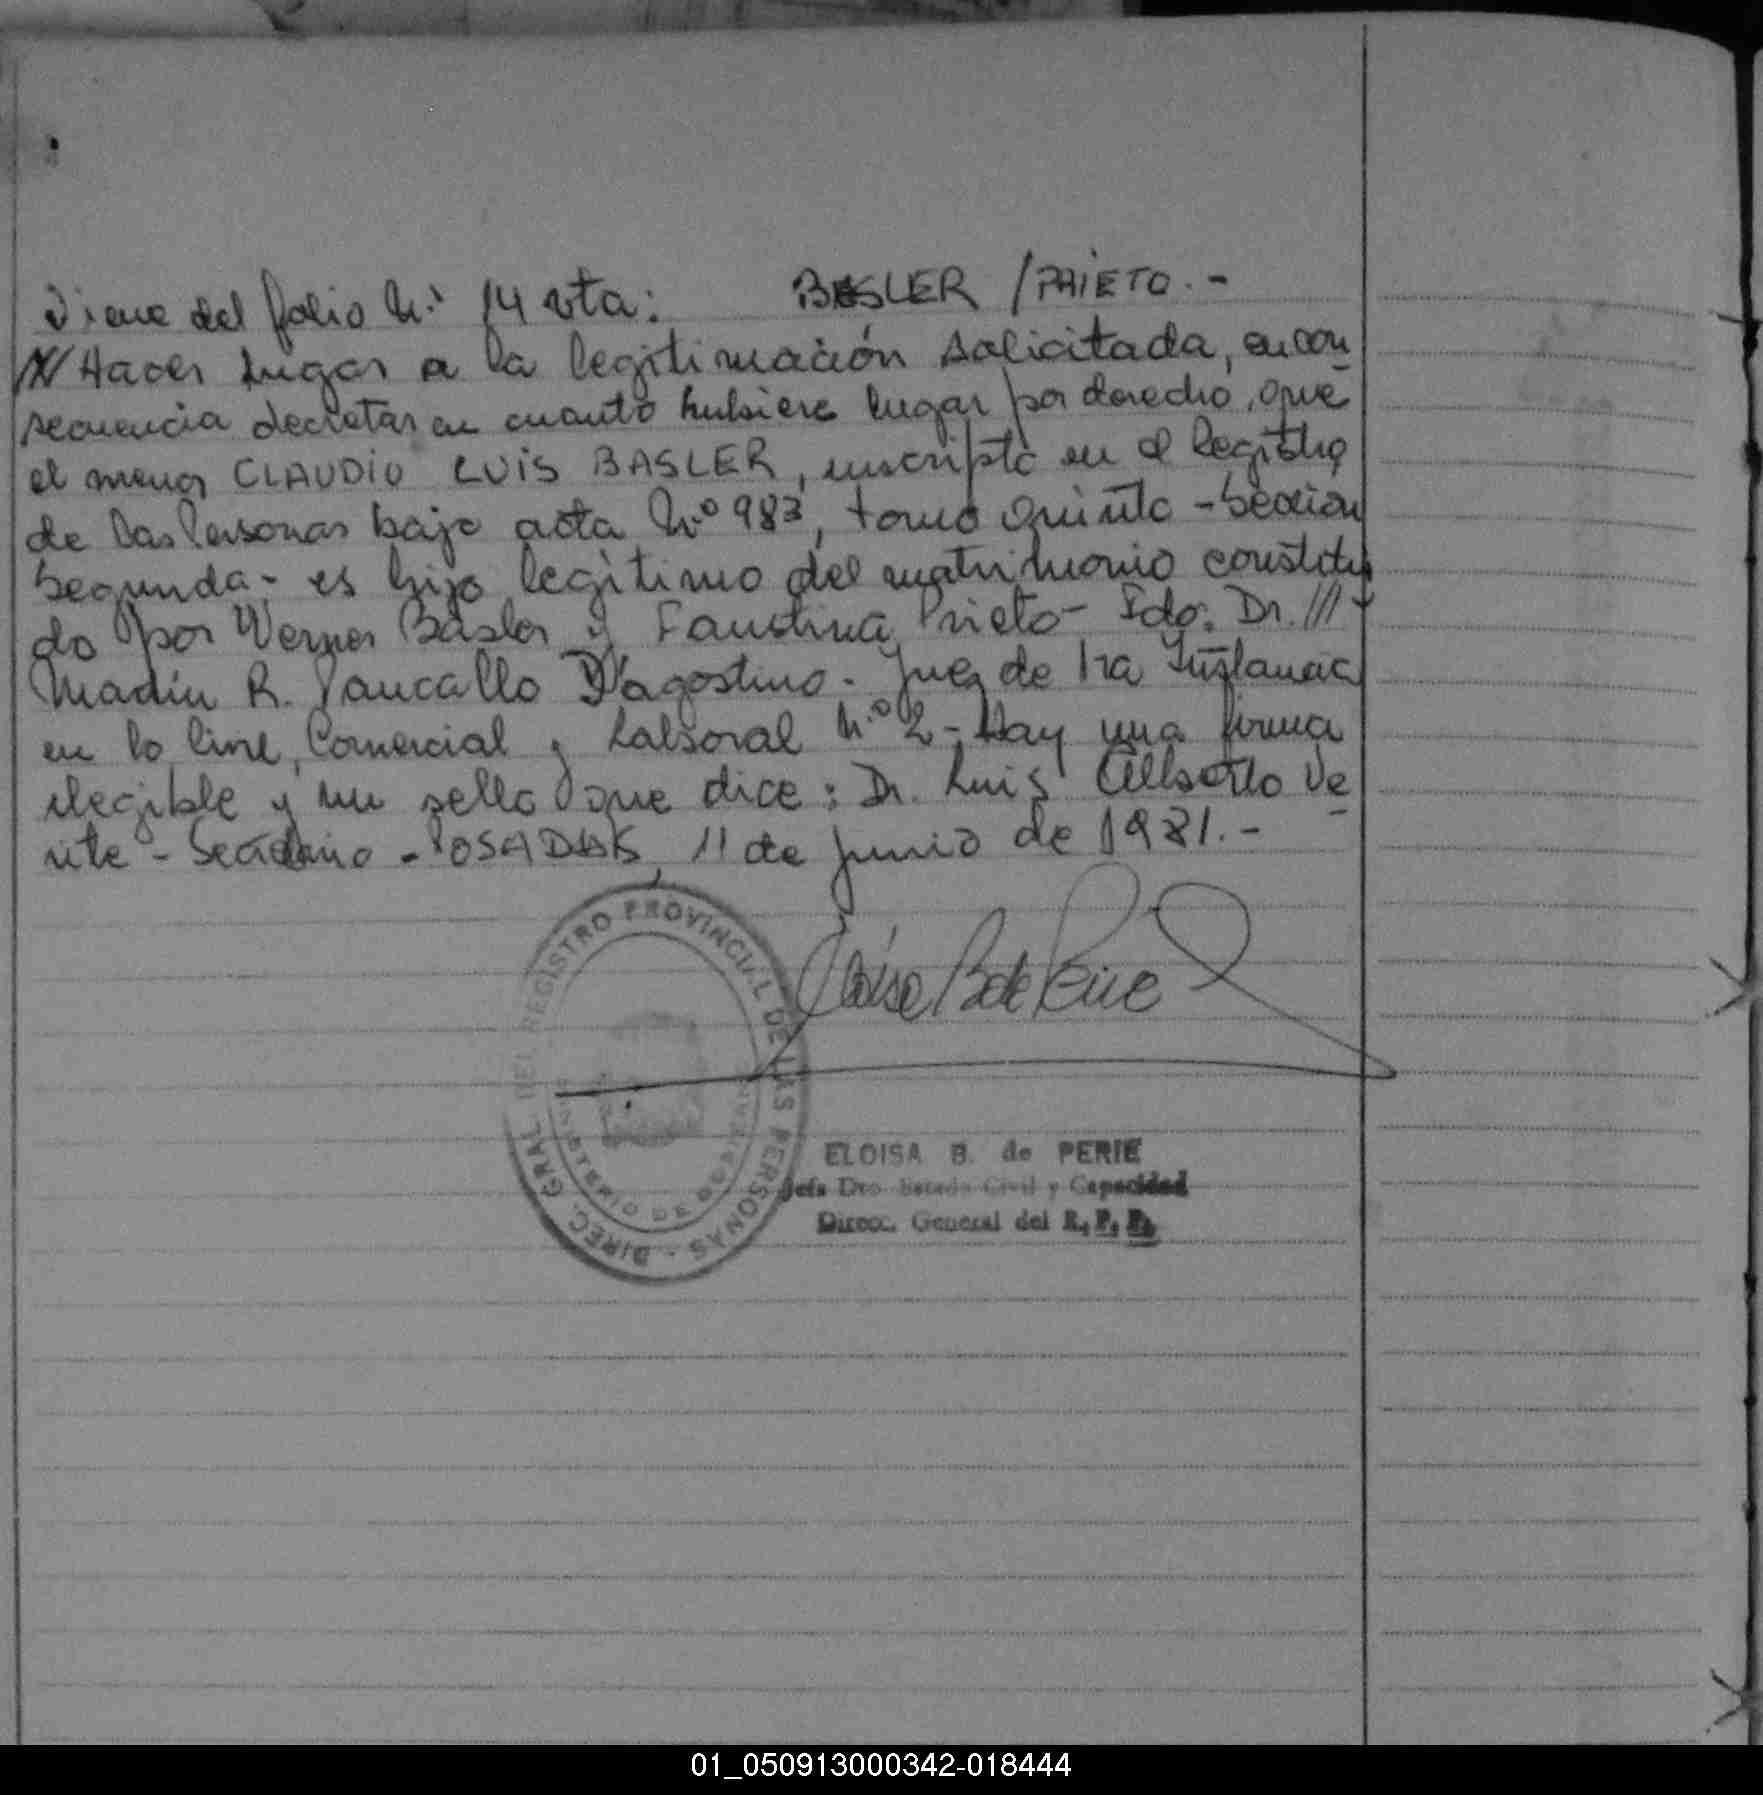 Viene del folio N.º 14 vta: BASLER / PRIETO.-
/// Hacer lugar a la legitimación solicitada, en con
secuencia decretar en cuanto hubiere lugar por derecho, que
el menor CLAUDIO LUIS BASLER, inscripto en el Registro
de las Personas bajo acta N.º 983, tomo quinto - Sección
Segunda - es hijo legítimo del matrimonio constitui
do por Werner Basler y Faustina Prieto - Fdo: Dr. ///
Martín R. D'agostino - Juez de 1ra Instancia
en lo Civil, Comercial y Laboral N.º 2 - Hay una firma
ilegible y un sello que dice: Dr. Luis Alberto Ve-
nte - Secretario - POSADAS, 11 de junio de 1981.-
DIREC. GRAL. DEL REGISTRO PROVINCIAL DE LAS PERSONAS -
MINISTERIO DE GOBIERNO
Eloisa B de Perie
ELOISA B. de PERIE
Jefe Dto Estado Civil y Capacidad
Direcc. General del R. P. P.
01_050913000342-018444